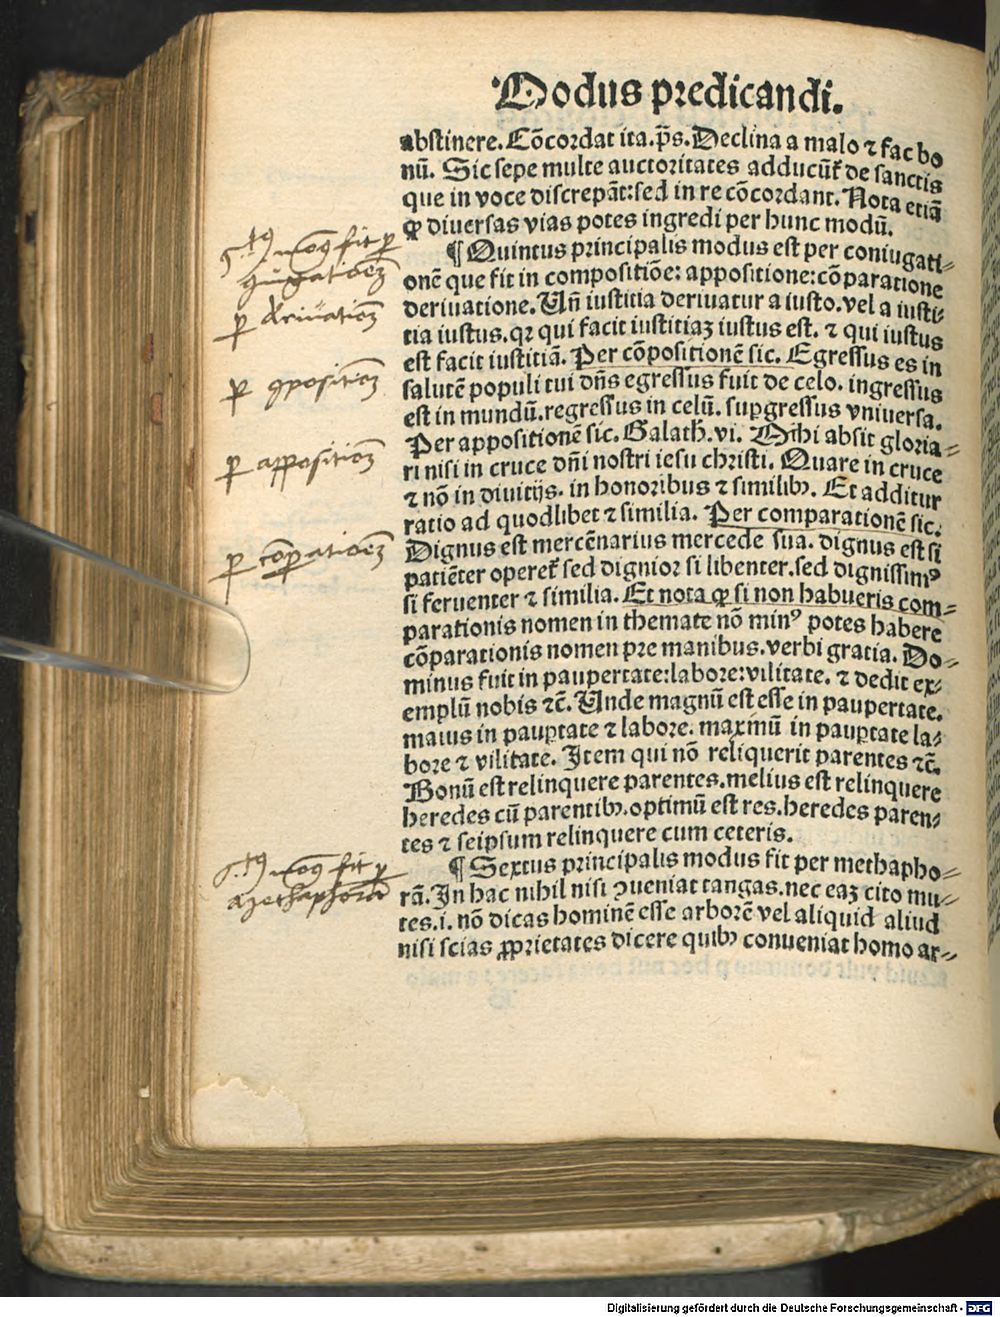 Modus predicandi.
abstinere. Cõcordat ita. p̃s. Declina a malo ⁊ fac bo
nũ. Sic sepe multe auctoritates adducũt̃ de sanctis
que in voce discrepãt: sed in re cõcordant. Nota etiã
ꝙ diuersas vias potes ingredi per hunc modũ.
¶ Quintus principalis modus est per coniugati⸗
onẽ que fit in compositiõe: appositione: cõparatione
deriuatione. Uñ iustitia deriuatur a iusto. vel a iusti⸗
tia iustus. qꝛ qui facit iustitiaꝫ iustus est. ⁊ qui iustus
est facit iustitiã. Per cõpositionẽ sic. Egressus es in
salutẽ populi tui dñs egressus fuit de celo. ingressus
est in mundũ. regressus in celũ. suꝑgressus vniuersa.
Per appositionẽ sic. Galath̃. vi. Mihi absit gloria⸗
ri nisi in cruce dñi nostri iesu christi. Quare in cruce
⁊ nõ in diuitijs. in honoribus ⁊ similibꝰ. Et additur
ratio ad quodlibet ⁊ similia. Per comparationẽ sic.
Dignus est mercẽnarius mercede sua. dignus est si
patiẽter operet̃ sed dignior si libenter. sed dignissimꝰ
si feruenter ⁊ similia. Et nota ꝙ si non habueris com⸗
parationis nomen in themate nõ minꝰ potes habere
cõparationis nomen pre manibus. verbi gratia. Do⸗
minus fuit in paupertate: labore: vilitate. ⁊ dedit ex⸗
emplũ nobis ⁊c̃. Unde magnũ est esse in paupertate.
maius in pauꝑtate ⁊ labore. maxmũ in pauꝑtate la⸗
bore ⁊ vilitate. Item qui nõ reliquerit parentes ⁊c̃.
Bonũ est relinquere parentes. melius est relinquere
heredes cũ parentibꝰ. optimũ est res. heredes paren⸗
tes ⁊ seipsum relinquere cum ceteris.
¶ Sextus principalis modus fit per methapho⸗
rã. In hac nihil nisi ꝯueniat tangas. nec eaꝫ cito mu⸗
tes. i. nõ dicas hominẽ esse arborẽ vel aliquid aliud
nisi scias ꝓprietates dicere quibꝰ conueniat homo ar⸗
5.tꝰ modꝰ fit ꝑ
ꝯiugationẽ
ꝑ deriuationẽ
ꝑ ꝯpositionẽ
ꝑ appositionẽ
ꝑ cõꝑationẽ
6.tꝰ modꝰ fit ꝑ
methaphorã
Digitalisierung gefördert durch die Deutsche Forschungsgemeinschaft - DFG